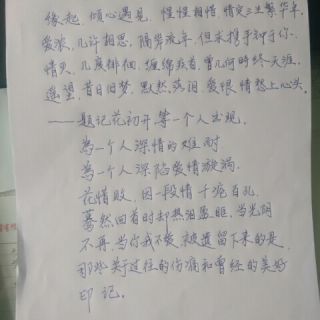 缘起，倾心遇见，惺惺相惜，情定三生繁华年，
爱浓，几许相思，隔岸流年，但求携手和于你，
情灭，几度徘徊，缠绵痴者，曾几何时终天涯，
遥望，昔日旧梦，默然落泪，爱恨情愁上心头。
——题记花初开等一个人出现，
为一个人深情的难耐
为一个人深陷爱情漩涡
花惜败，因一段情千疮百孔
蓦然回首时却热泪盈眶，当光阴
不再，当你我不候，被遗留下来的是，
那些关于过往的伤痛和曾经的美好
印记。